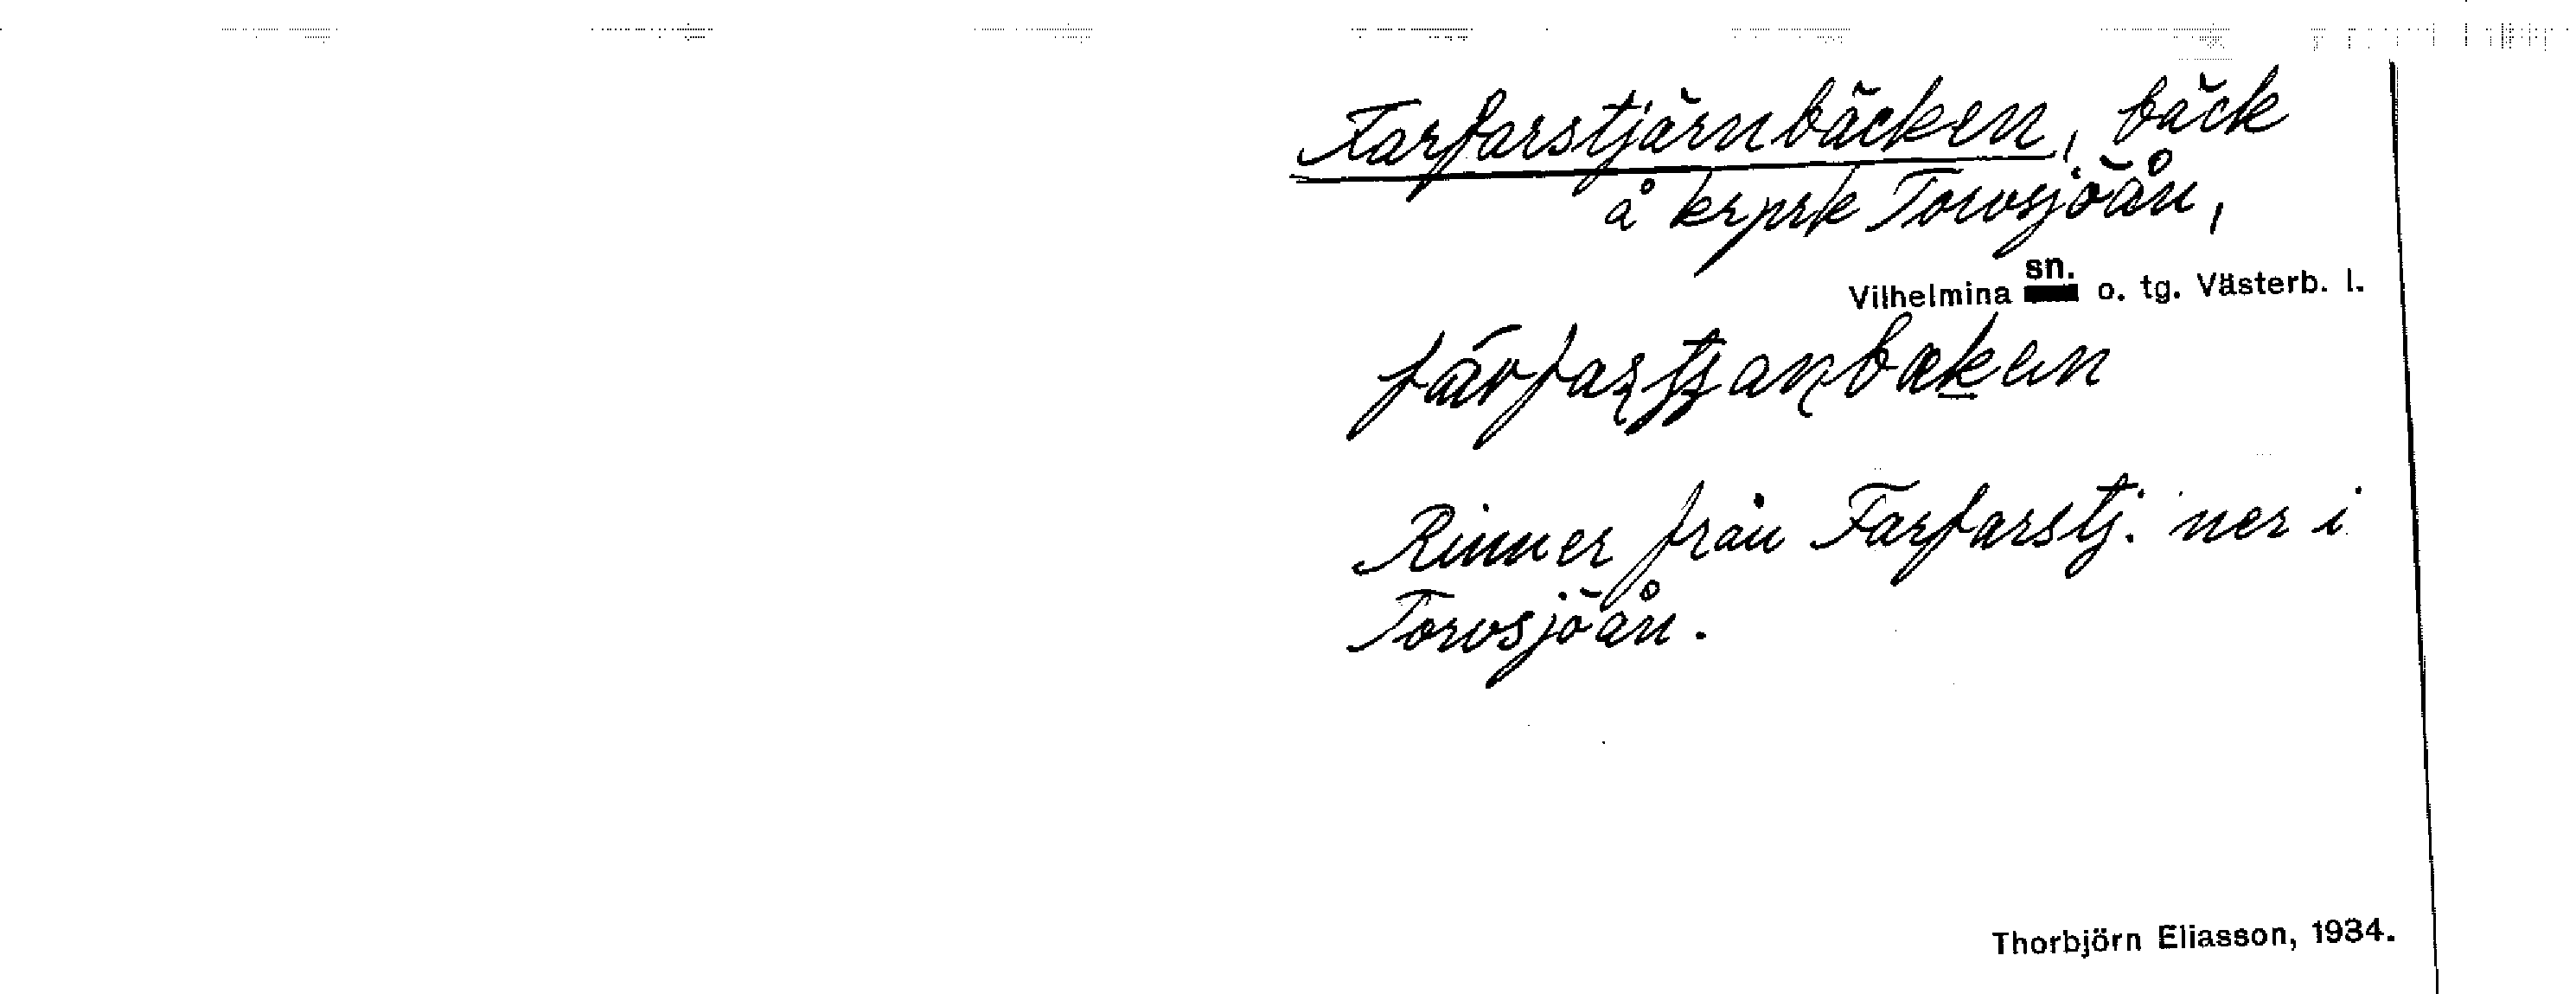 Farfarstjärnbäcken, bäck
å krprk Torvsjöån,
Vilhelmina sn. o. tg. Västerb. l.
Rinner från Farfarstj. ner i
Torvsjöån.
Thorbjörn Eliasson, 1934.